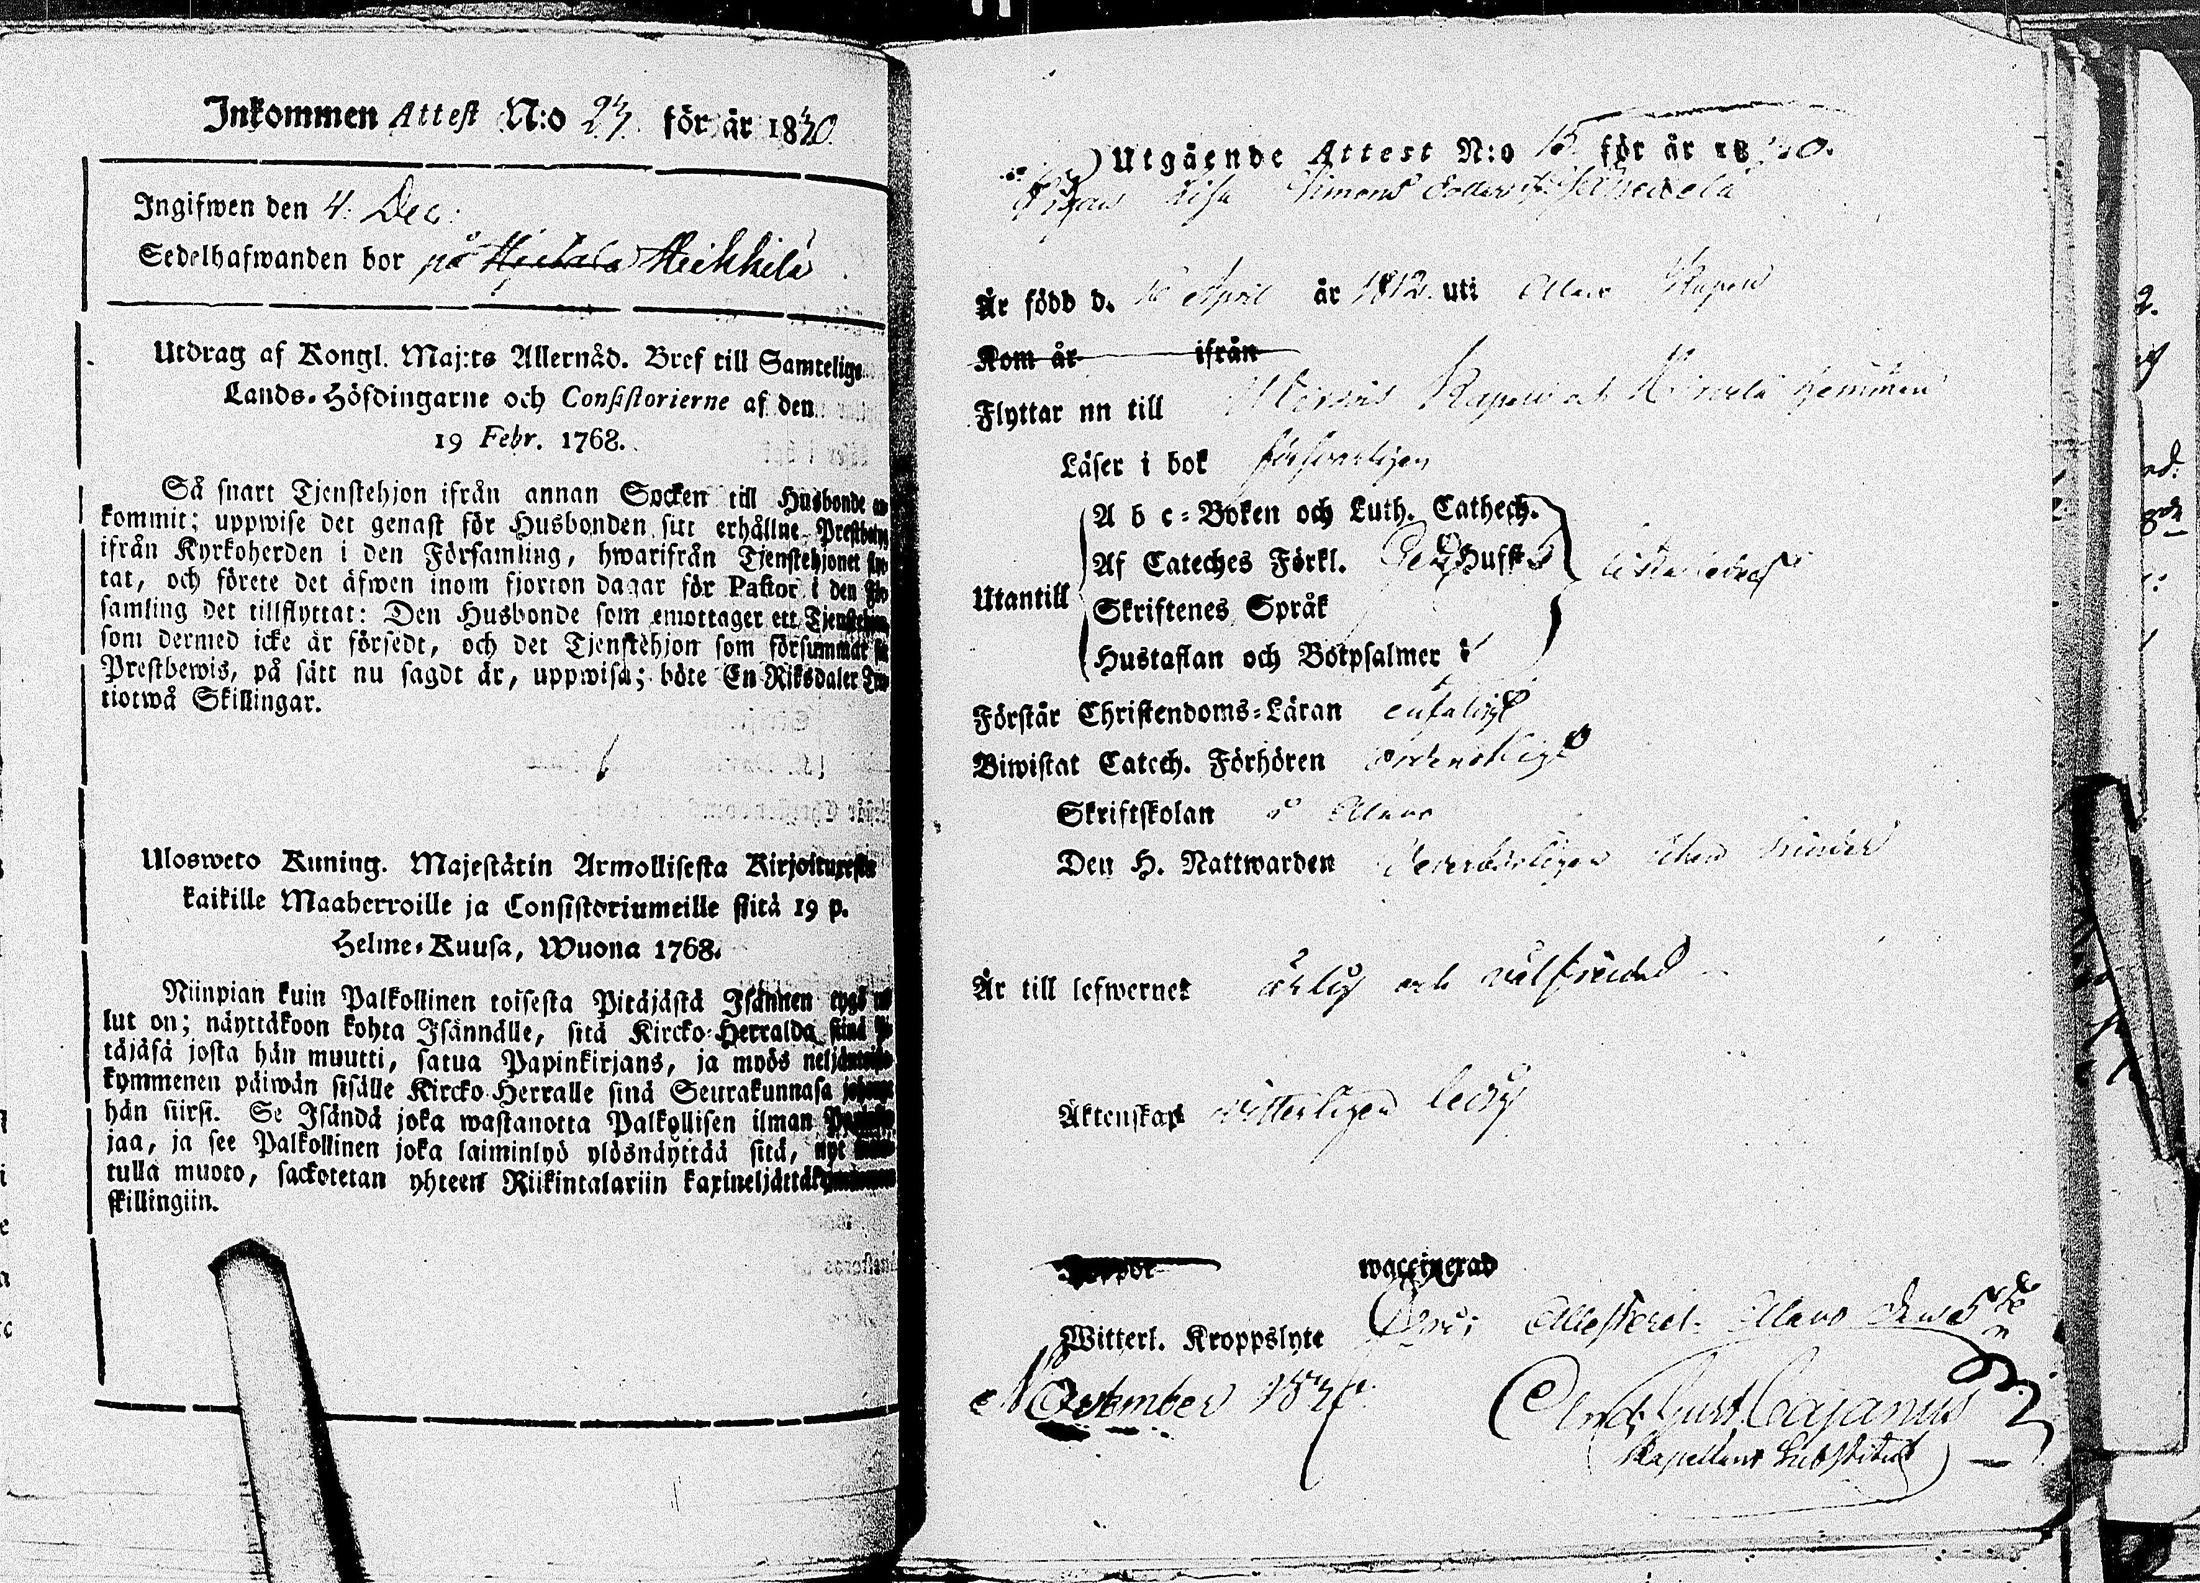 Inkommen Attest N:o 27. för år 1840.
Ingifwen den 4: Dec:
Sedelhafwanden bor på Heikkilä
Utdrag af Kongl. Maj:ts Allernåd. Bref till Samtelige
Lands-Höfdingarne och Consistorierne af den
19 Febr. 1768.
Så snart Tjenstehjon ifrån annan Socken till Husbonde an
kommit; uppwise det genast för Husbonden sitt erhållne Prestbewis
ifrån Kyrkoherden i den Församling, hwarifrån Tjenstehjonet flyt
tat, och förete det äfwen inom fjorton dagar för Pastor i den För
samling det tillflyttat: Den Husbonde som emottager ett Tjenstehjon
som dermed icke är försedt, och det Tjenstehjon som försummar sitt
Prestbewis, på sätt nu sagdt är, uppwisa; böte En Riksdaler Tre
tiotwå Skillingar.
Ulosweto Kuning. Majestätin Armollisesta Kirjoituxesta
kaikille Maaherroille ja Consistoriumeille siitä 19 p.
Helme-Kuusa, Wuona 1768.
Niinpian kuin Palkollinen toisesta Pitäjästä Isännen tygö tul
lut on; näyttäkoon kohta Isännälle, sitä Kircko-Herralda siinä Pi
täjäsä josta hän muutti, satua Papinkirjans, ja myös neljäntoista
kymmenen päiwän sisälle Kircko-Herralle sinä Seurakunnasa johonga
hän siirsi. Se Isändä joka wastanotta Palkollisen ilman Papinkir
jaa, ja see Palkollinen joka laiminlyö ylösnäyttää sitä, nyt
tulla muoto, sackotetan yhteen Riikintalariin kaxineljättäkymmenen
skillingiin.
Utgående Attest N:o 15. för år 1840.
Pigan Lisa Simons dotter
Är född d. 10 April år 1812. uti Alavo Kapell
Kom år ifrån
Flyttar nu till Kapell och hemman
Läser i bok försvarligen
Utantill
A b c-Boken och Luth. Cathech.
Af Cateches Förkl.
Skriftenes Språk
Hustaflan och Botpsalmer
Förstår Christendoms-Läran enfaldigt
Biwistat Catech. Förhören ordentligt
Skriftskolan i Alavo
Den H. Nattwarden utan hinder
Är till lefwernet ärlig och välfrejdad
Äktenskap witterligen ledig
Koppor waccinerad
Witterl. Kroppslyte Attesteras Alavo den 5te
November 1840.
And: Gust. Cajanus
Kapellans Substitut